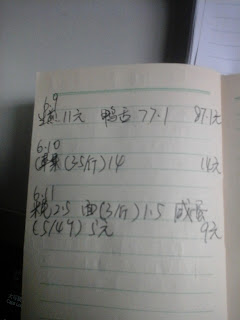 6.9
11元 鸭舌 77.1 87.1元
6.10
苹果(3.5/斤)14 14元
6.11
2.5 面(3/斤)1.5 咸蛋
(5/4个)5元 9元